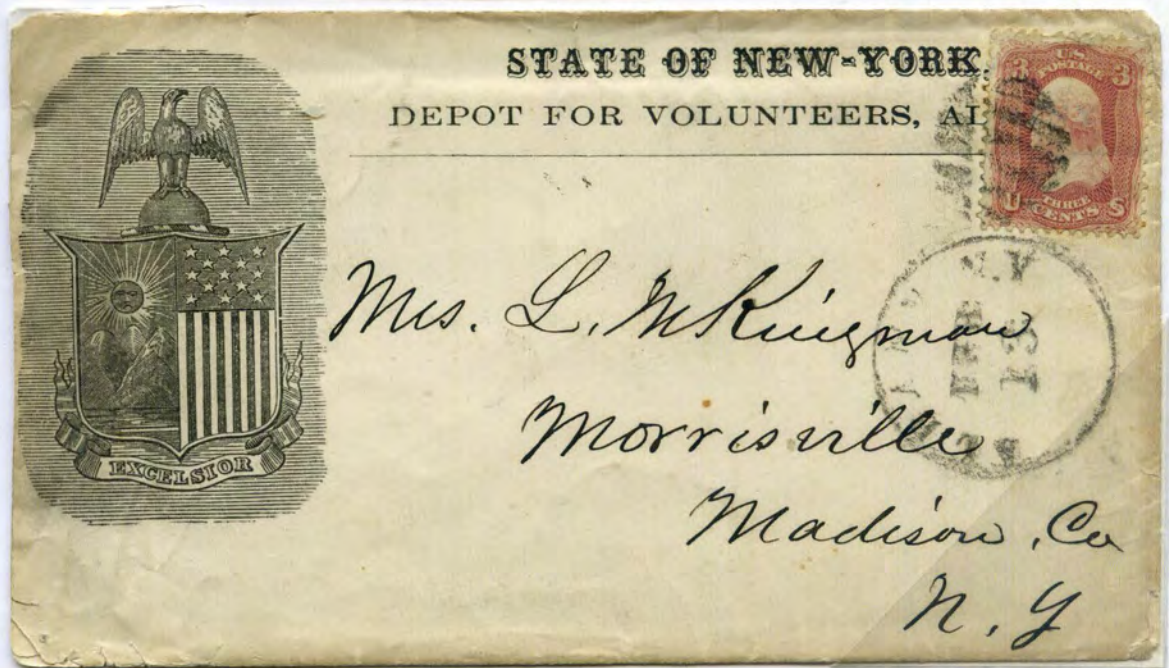 STATE OF NEW-YORK.
DEPOT FOR VOLUNTEERS, AL
3 U.S. POSTAGE 3
U THREE CENTS S
N.Y
DEC
13
EXCELSIOR
Mrs. L. M Kingman
Morrisville
Madison, Co
N. Y